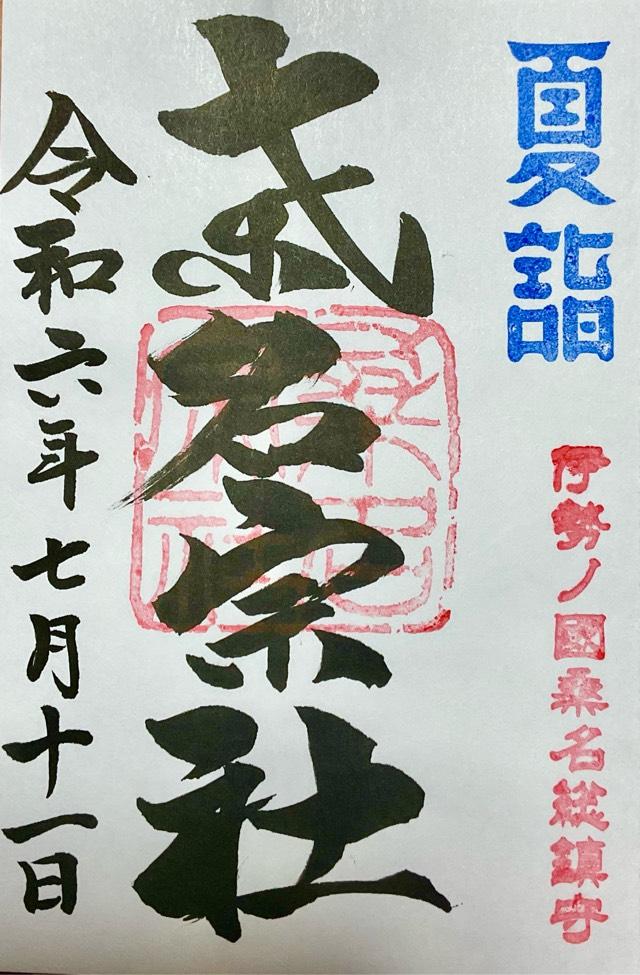 夏詣
伊勢ノ國桑名総鎮守
桑名宗社
令和六年七月十一日